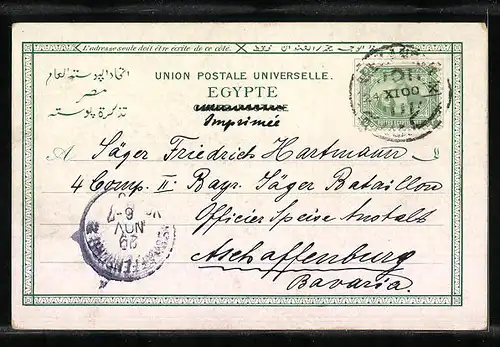 L'adresse seule doit être écrite de ce côté.
اتحاد البوسته العام
مصر
تذكرة بوسته
UNION POSTALE UNIVERSELLE.
EGYPTE
Imprimée
XI 00
A Jäger Friedrich Hartmann
4 Comp. II. Bayr. Jäger Bataillon
Officier Speise Anstalt
Aschaffenburg
Bavaria.
29
NOV
6-7